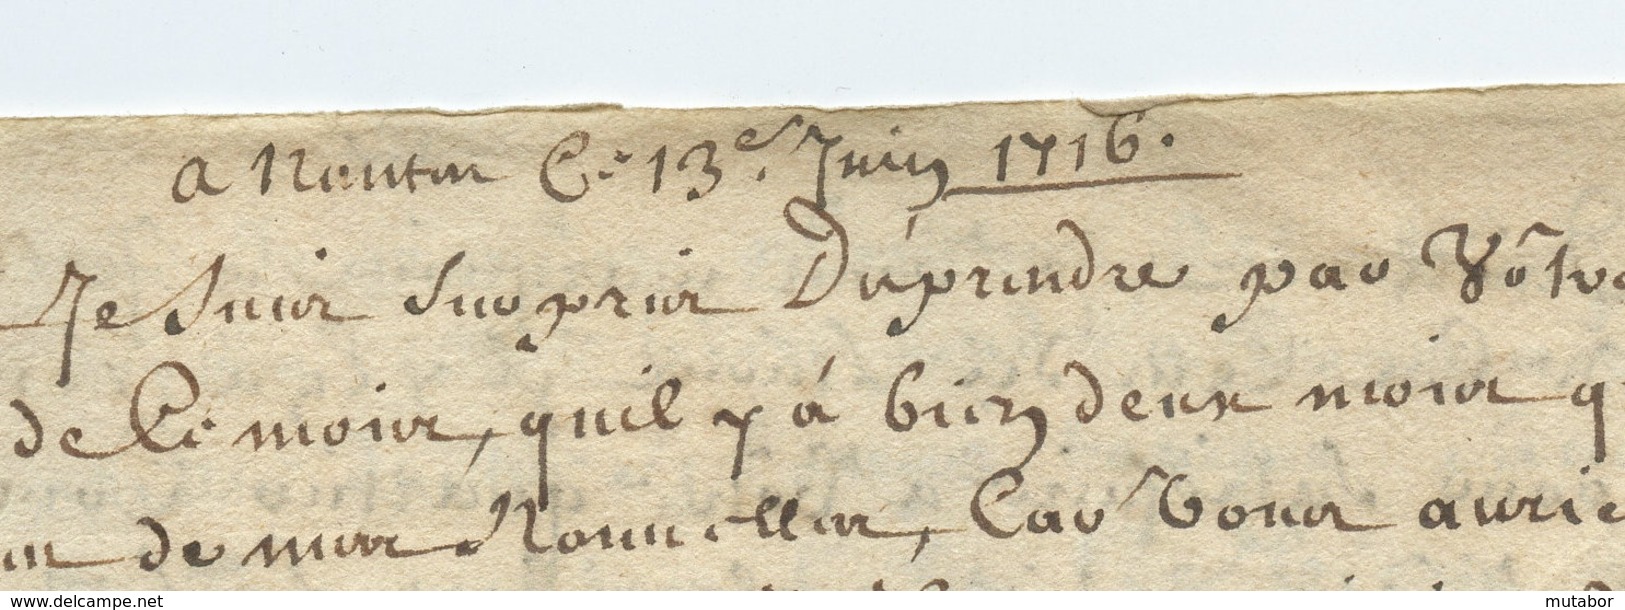 a Nantes Ce 13e. Juin 1716.
Je suis surpris D'aprendre par Vôtre
de Ce mois, qu'il y á bien deux mois
de mes Nouvelles, Car Vous
www.delcampe.net mutabor